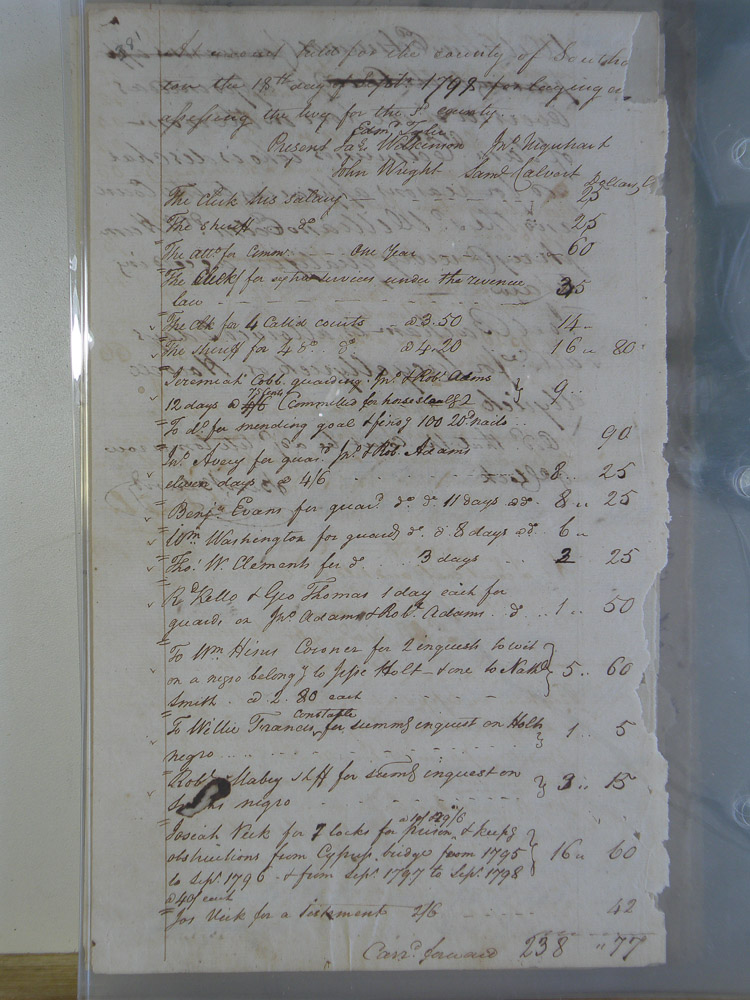 At a court held for the county of Southa
ton the 18th day of Sept. 1798 for laying a
assessing the levy for the sd. county
Edmd. Tyler
Present Jas. Wilkinson Jno. Urquhart
John Wright Saml. Calvert
Dollars C
The Clerk his salary 25
The Sheriff do. 25
The atto. for Comm. One Year 60
The Clerk for extra services under the revenue
law 35
The Clk for 4 Call'd courts @ 3.50 14 ..
The Sheriff for 4 do. do. @ 4.20 16 .. 80
Jeremiah Cobb guarding Jno. & Robt. Adams
75 Cents
12 days @ 4/6 (Committed for horse stealg) 9 ..
To do. for mending goal & fin.g 100 20d. nails 90
Jno. Avery for guard. Jno. & Robt. Adams
eleven days @ 4/6 8 .. 25
Benja. Evans for guard. do. do. 11 days @ do. 8 .. 25
Wm. Washington for guardg do. do. 8 days @ do. 6 ..
Tho. W Clements for do. 3 days 2 25
Rd. Kello & Geo Thomas 1 day each for
guardg on Jno. Adams & Robt. Adams do. 1 .. 50
To Wm. Hines Coroner for 2 inquests to wit
on a negro belongg to Jesse Holt & one to Nathl.
Smith @ 2.80 each 5 .. 60
Constable
To Willie Francis, for summg inquest on Holts
negro 1 5
Robt. Mabry shff for summg inquest on
negro 3 .. 15
@ 9/6
Josiah Vick for 7 locks for prison & keepg
obstructions from Cypress bridge from 1795
to Sept. 1796 & from Sept. 1797 to Sept. 1798 16 .. 60
@ 40/ each
Jos Vick for a 2/6 42
Carrd. forward 238 .. 77